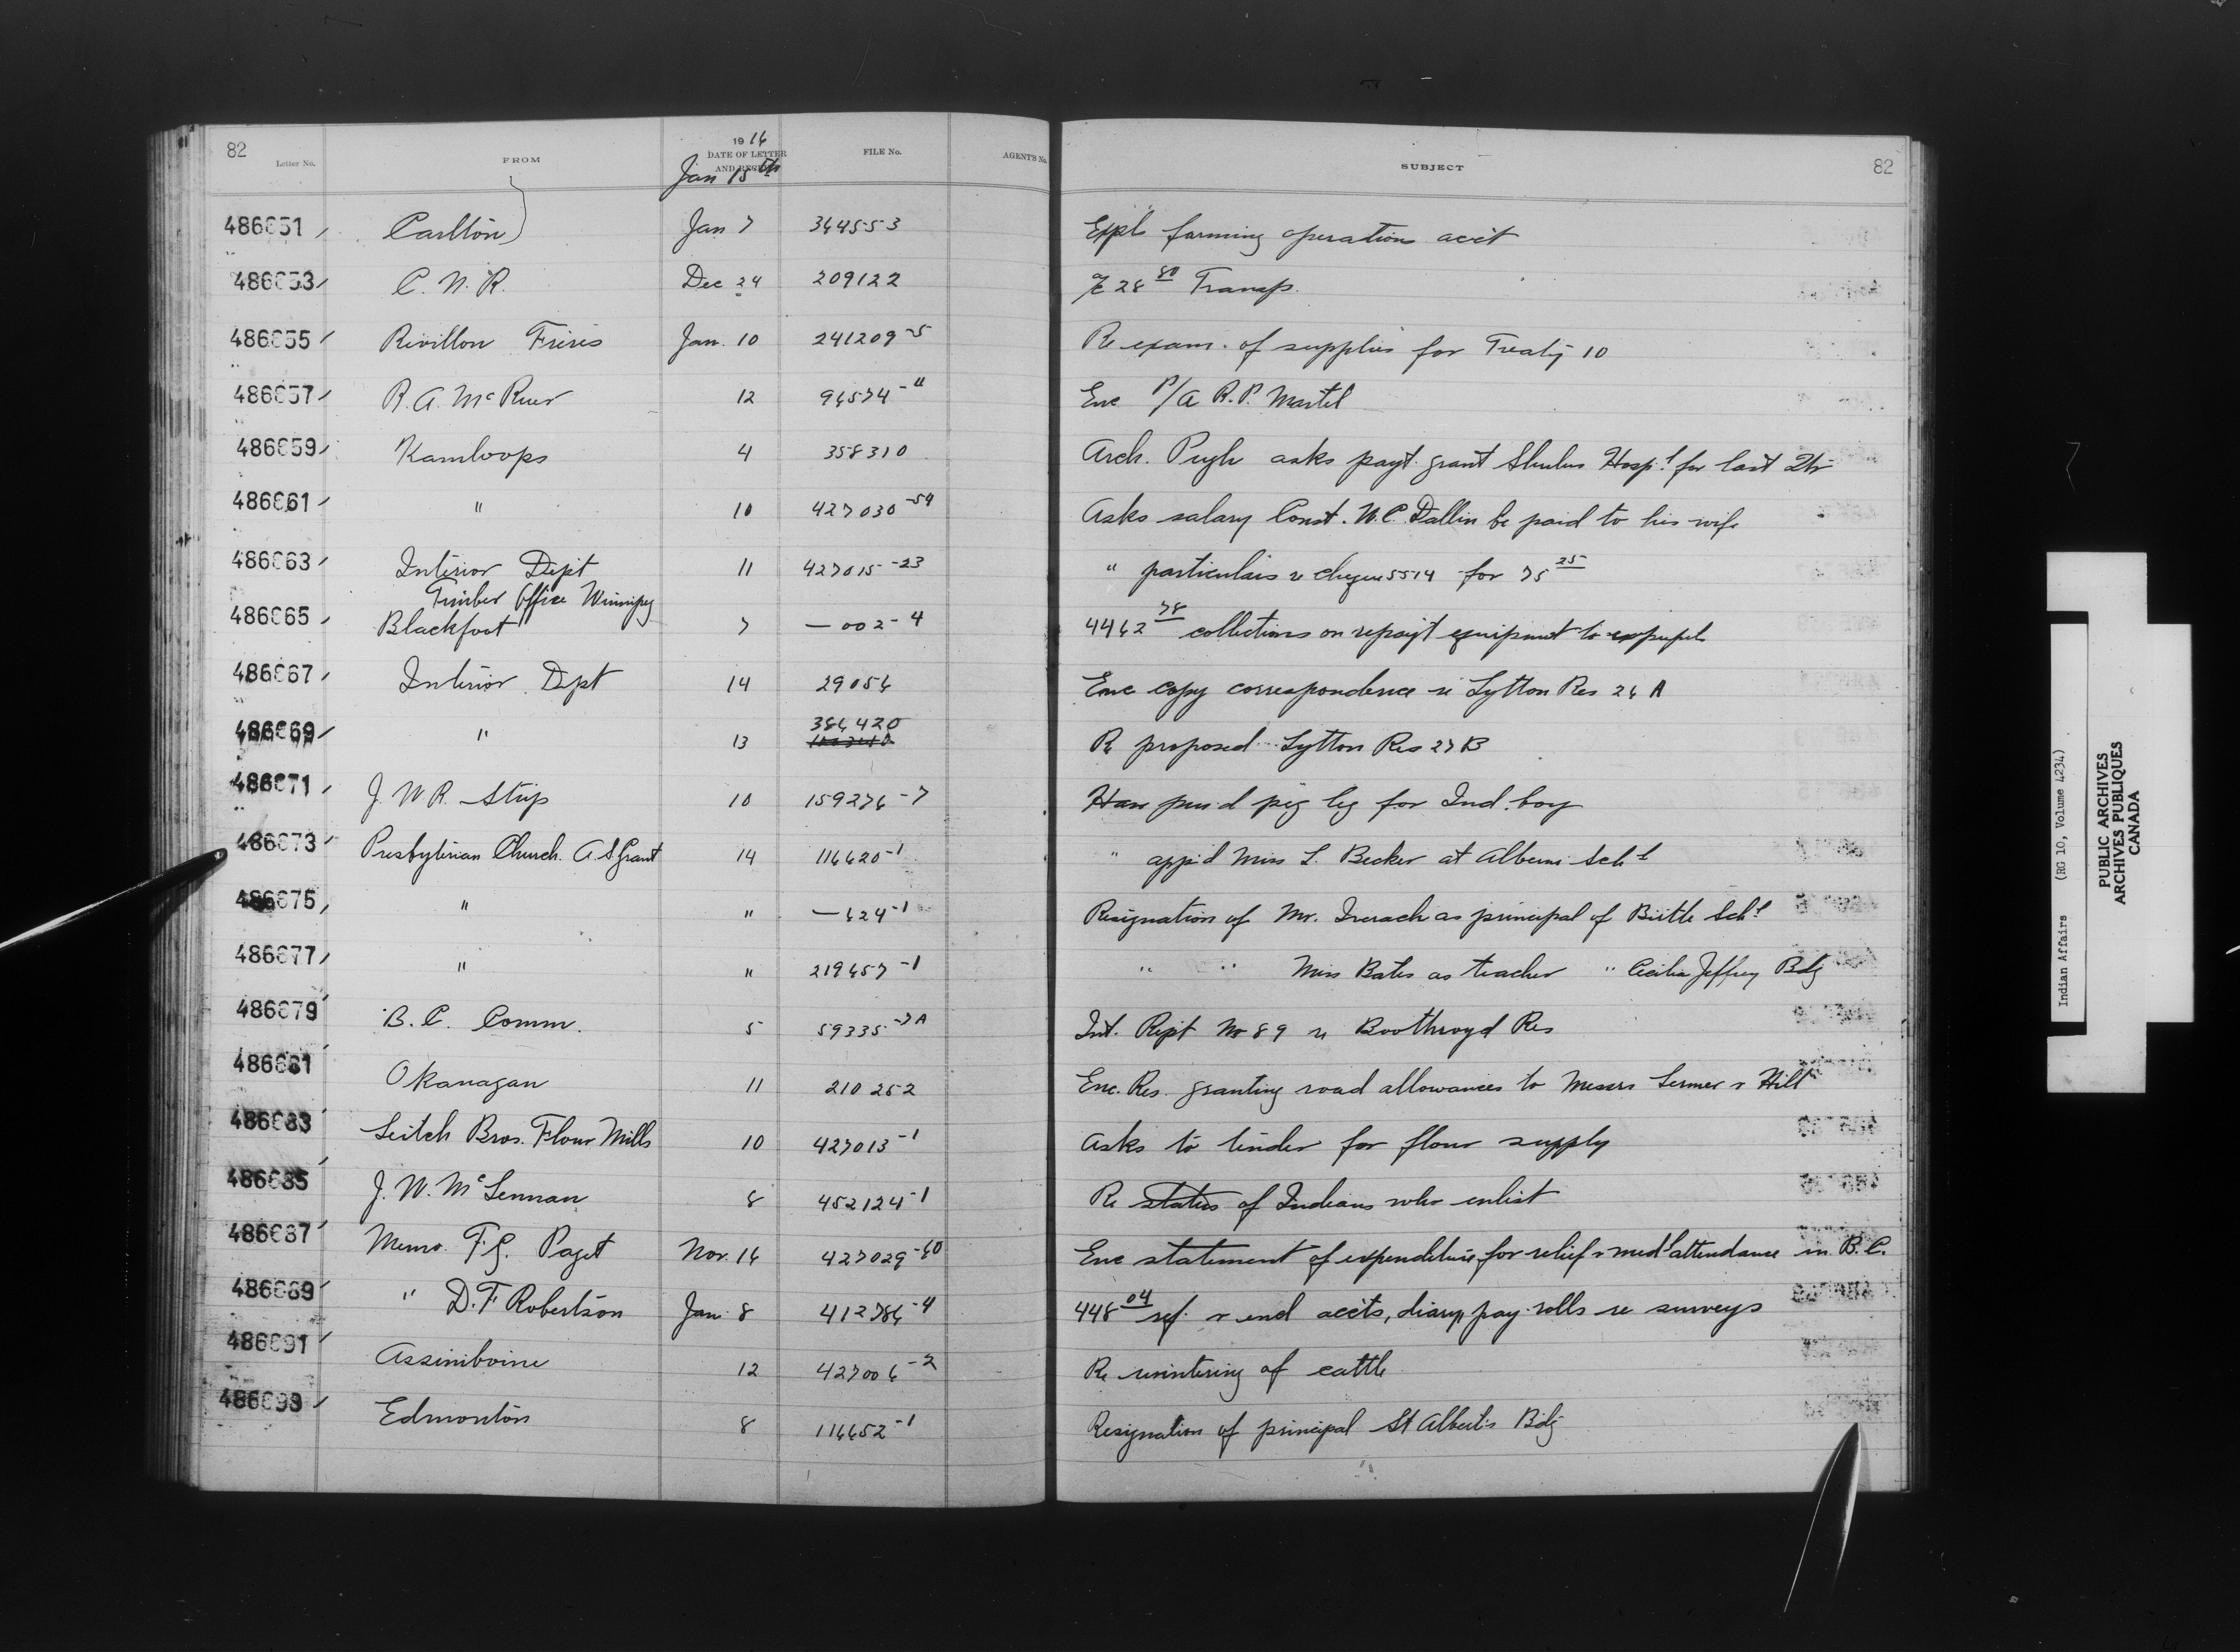 82
Letter No.
FROM
1916
DATE OF LETTER
AND REGISTER
Jan 15th
FILE No.
AGENT'S No.
SUBJECT
82
486651 Carlton Jan 7 364553 Expl. farming operations acct
486653 C. N. R. Dec 24 209122 a/c 28 80 Transp.
486655 Revillon Freres Jan. 10 241209-5 Re exam. of supplies for Treaty 10
486657 R. A. McRuer 12 96574-11 Enc P/A R. P. Martel
486659 Kamloops 4 358310 Arch. Pugh asks payt. grant Shulus Hosp'l for last Qtr
486661 " 10 427030-54 Asks salary Const. W. C. Dallin be paid to his wife
486663 Interior Dept 11 427015-23 " particulars re cheque 5514 for 75 25
Timber Office Winnipeg
486665 Blackfoot 7 — 002-4 4462 78 collections on repay't equipment to expupils
486667 Interior Dept 14 29056 Enc copy correspondence re Lytton Res 26 A
486669 " 13 386420 Re proposed Lytton Res 27 B
486671 J. W. R. 10 159276-7 Have pur'd peg leg for Ind. boy
486673 Presbyterian Church. A. S. Grant 14 116620-1 " app'd Miss L. Becker at Alberni Sch'l
486675 " " — 624-1 Resignation of Mr. Iverach as principal of Birtle Sch'l
486677 " " 219657-1 " " Miss Bates as teacher " Cecilia Jeffrey Bdg
486679 B. C. Comm. 5 59335-7A Int. Rept No 89 re Boothroyd Res
486681 Okanagan 11 210252 Enc. Res. granting road allowances to Messrs Lermer & Hill
486683 Leitch Bros. Flour Mills 10 427013-1 Asks to tender for flour supply
486685 J. W. McLennan 8 452124-1 Re status of Indians who enlist
486687 Memo. F. G. Paget Nov. 16 427029-60 Enc statement of expenditure for relief & med'l attendance in B. C.
486689 " D. F. Robertson Jan 8 412786-4 448 04 ref. & encl accts, diary, pay rolls re surveys
486691 Assiniboine 12 427006-2 Re wintering of cattle
486693 Edmonton 8 116652-1 Resignation of principal St Albert's Bdg
Indian Affairs (RG 10, Volume 4234)
PUBLIC ARCHIVES
ARCHIVES PUBLIQUES
CANADA